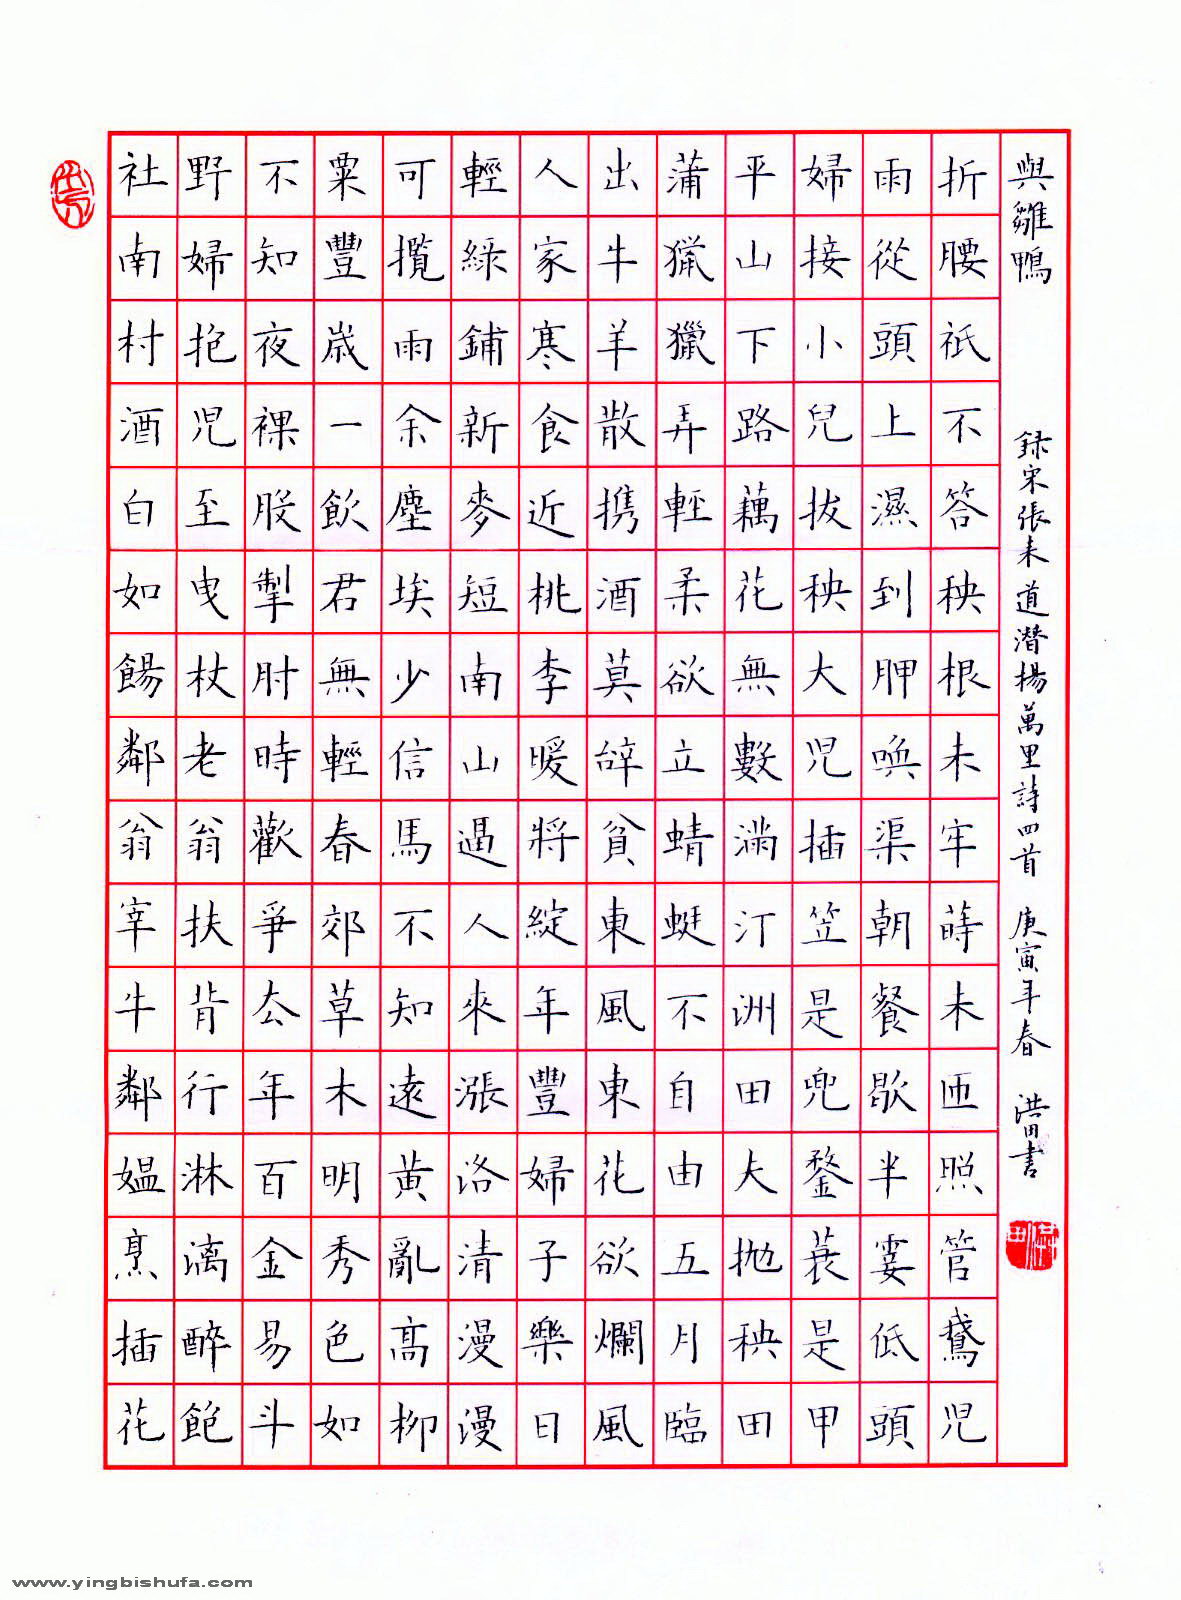 社南村酒白如餳鄰翁宰牛鄰媼烹插花
野婦抱児至曳杖老翁扶背行淋漓醉飽
不知夜裸股掣肘時歡爭去年百金易斗
粟豐歲一飲君無輕春郊草木明秀色如
可攬雨余塵埃少信馬不知遠黃亂高柳
輕綠鋪新麥短南山逼人來漲洛清漫漫
人家寒食近桃李暖將綻年豐婦子樂日
出牛羊散携酒莫辞貧東風東花欲爛風
蒲獵獵弄輕柔欲立蜻蜓不自由五月臨
平山下路藕花無數滿汀洲田夫拋秧田
婦接小兒拔秧大児插笠是兜鍪蓑是甲
雨從頭上濕到胛喚渠朝餐歇半霎低頭
折腰祇不答秧根未牢蒔未匝照管鵞児
與雛鴨
録宋張耒道潛楊萬里詩四首 庚寅年春 浩田書
www.yingbishufa.com